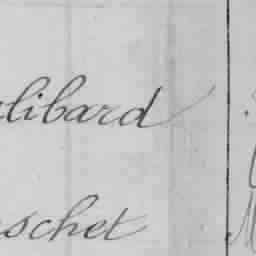 alibard
schet